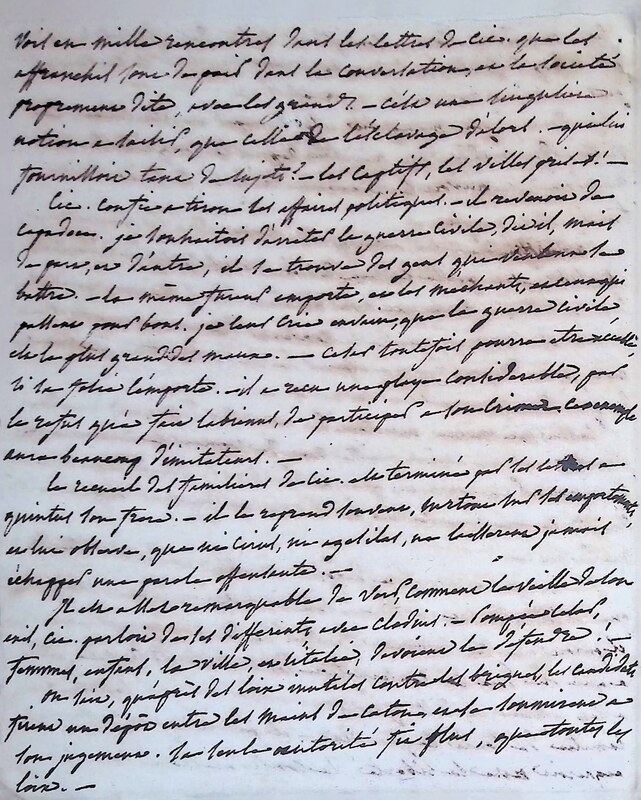 voit en mille rencontres dans les lettres de cic. que les
affranchis sont de pair dans la conversation, et la société
proprement dite, avec les grands. – c'est une singulière
notion a saisir, que celle de l'esclavage d'alors. – qui lui
fournissoit tant de sujets? – les captifs, les villes prises! –
cic. confie a tiron les affaires politiques. – il revenoit de
je souhaitois d'arrêter la guerre civile, dit-il, mais
de part, et d'autre, il se trouve des gens qui veulent se
battre. – la même fureur emporte, et les méchants, et ceux qui
passent pour bons. je leur crie envain, que la guerre civile
est le plus grand des maux. – César toutefois pourra etre
si sa folie l'emporte. – il a reçu une playe considérable, par
le refus qu'a fait labienus, de participer a son crime. cet exemple
aura beaucoup d'imitateurs. –
le recueil des familieres de cic. est terminé par les lettres a
quintus son frere. – il le reprend souvent, surtout sur ses emportements,
et lui observe, que ni cirus, ni agesilas, ne laisserent jamais
échapper une parole offensante. –
Il est assez remarquable de voir, comment la veille de son
exil, cic. parloit de ses differents, avec clodius. – Pompée César,
femmes, enfans, la ville, et l'italie, devoient le défendre!
on sait, qu'après des loix inutiles contre les brigues, les candidats
firent un dépôt entre les mains de caton, et se soumirent a
son jugement. sa seule autorité fit plus, que toutes les
loix. –